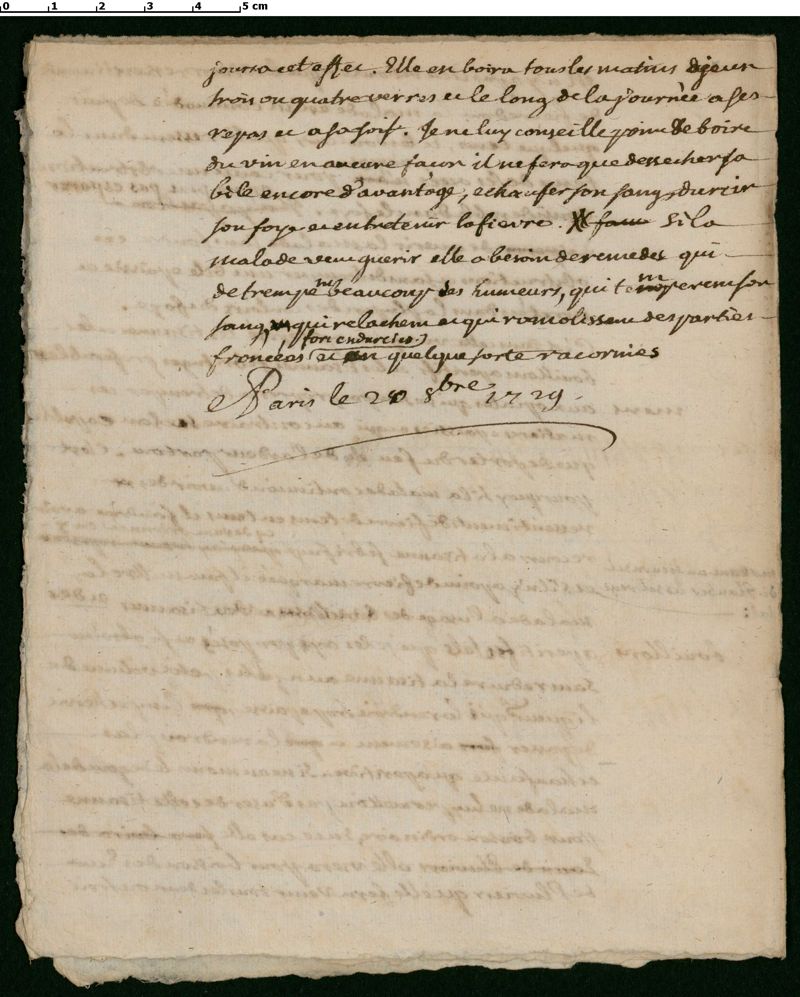 0 1 2 3 4 5 cm
jours a cet effet. Elle en boira tous les matins a jeun
trois ou quatre verres et le long de la journée a ses
repas et a sa soif. Je ne luy conseille point de boire
du vin en aucune facon il ne fera que dessecher sa
bile encore d'avantage, echaufer son sang, durcir
son foye et entretenir la fievre. Il faut si la
malade veut guerir elle a besoin de remedes qui
detrempent beaucoup les humeurs, qui temperent son
sang, qui relachent et qui ramolissent des parties
fort endurcies
froncées et en quelque sorte racornies
A Paris le 28 8bre 1729.